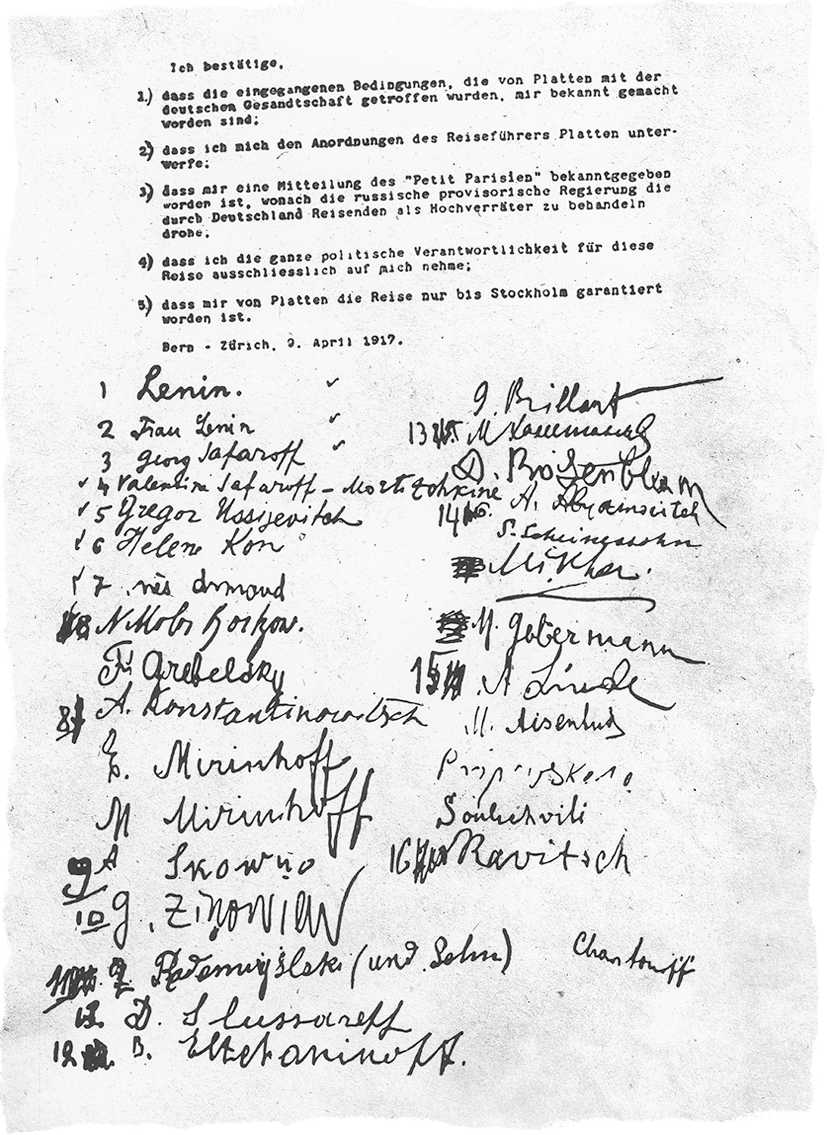 Ich bestätige,
1.) dass die eingegangenen Bedingungen, die von Platten mit der
deutschen Gesandtschaft getroffen wurden, mir bekannt gemacht
worden sind;
2) dass ich mich den Anordnungen des Reiseführers Platten unter-
werfe;
3) dass mir eine Mitteilung des "Petit Parisien" bekanntgegeben
worden ist, wonach die russische provisorische Regierung die
durch Deutschland Reisenden als Hochverräter zu behandeln
drohe;
4) dass ich die ganze politische Verantwortlichkeit für diese
Reise ausschliesslich auf mich nehme;
5) dass mir von Platten die Reise nur bis Stockholm garantiert
worden ist.
Bern - Zürich, 9. April 1917.
1 Lenin.
2 Frau Lenin
3 Georg Safaroff
4 Valentina Safaroff -
5 Gregor Ussijevitch
6 Helene Kon
7 Inès Armand
8 N.
F. Grebelsky
8 A. Konstantinowitsch
E. Mirinhoff
M Mirinhoff
9 A Skowno
10 G. Zinowiew
(und Sohn)
12 D. Slussareff
12 B. Eltchaninoff.
G. Brillant
13 M
D. Rosenblum
14 A. Abramovitch
S. Scheinessohn
M. Gobermann
15 A Linde
M. Aisenbud
Soulichvili
16 Ravitsch
Charitonoff